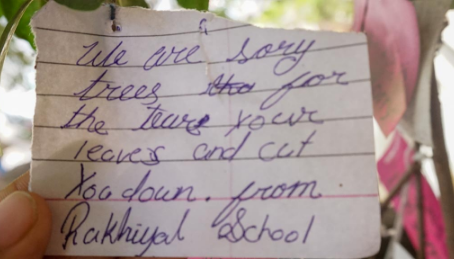 We are sory
trees for
the teare your
leaves and cut
You down. from
Rakhiyal School